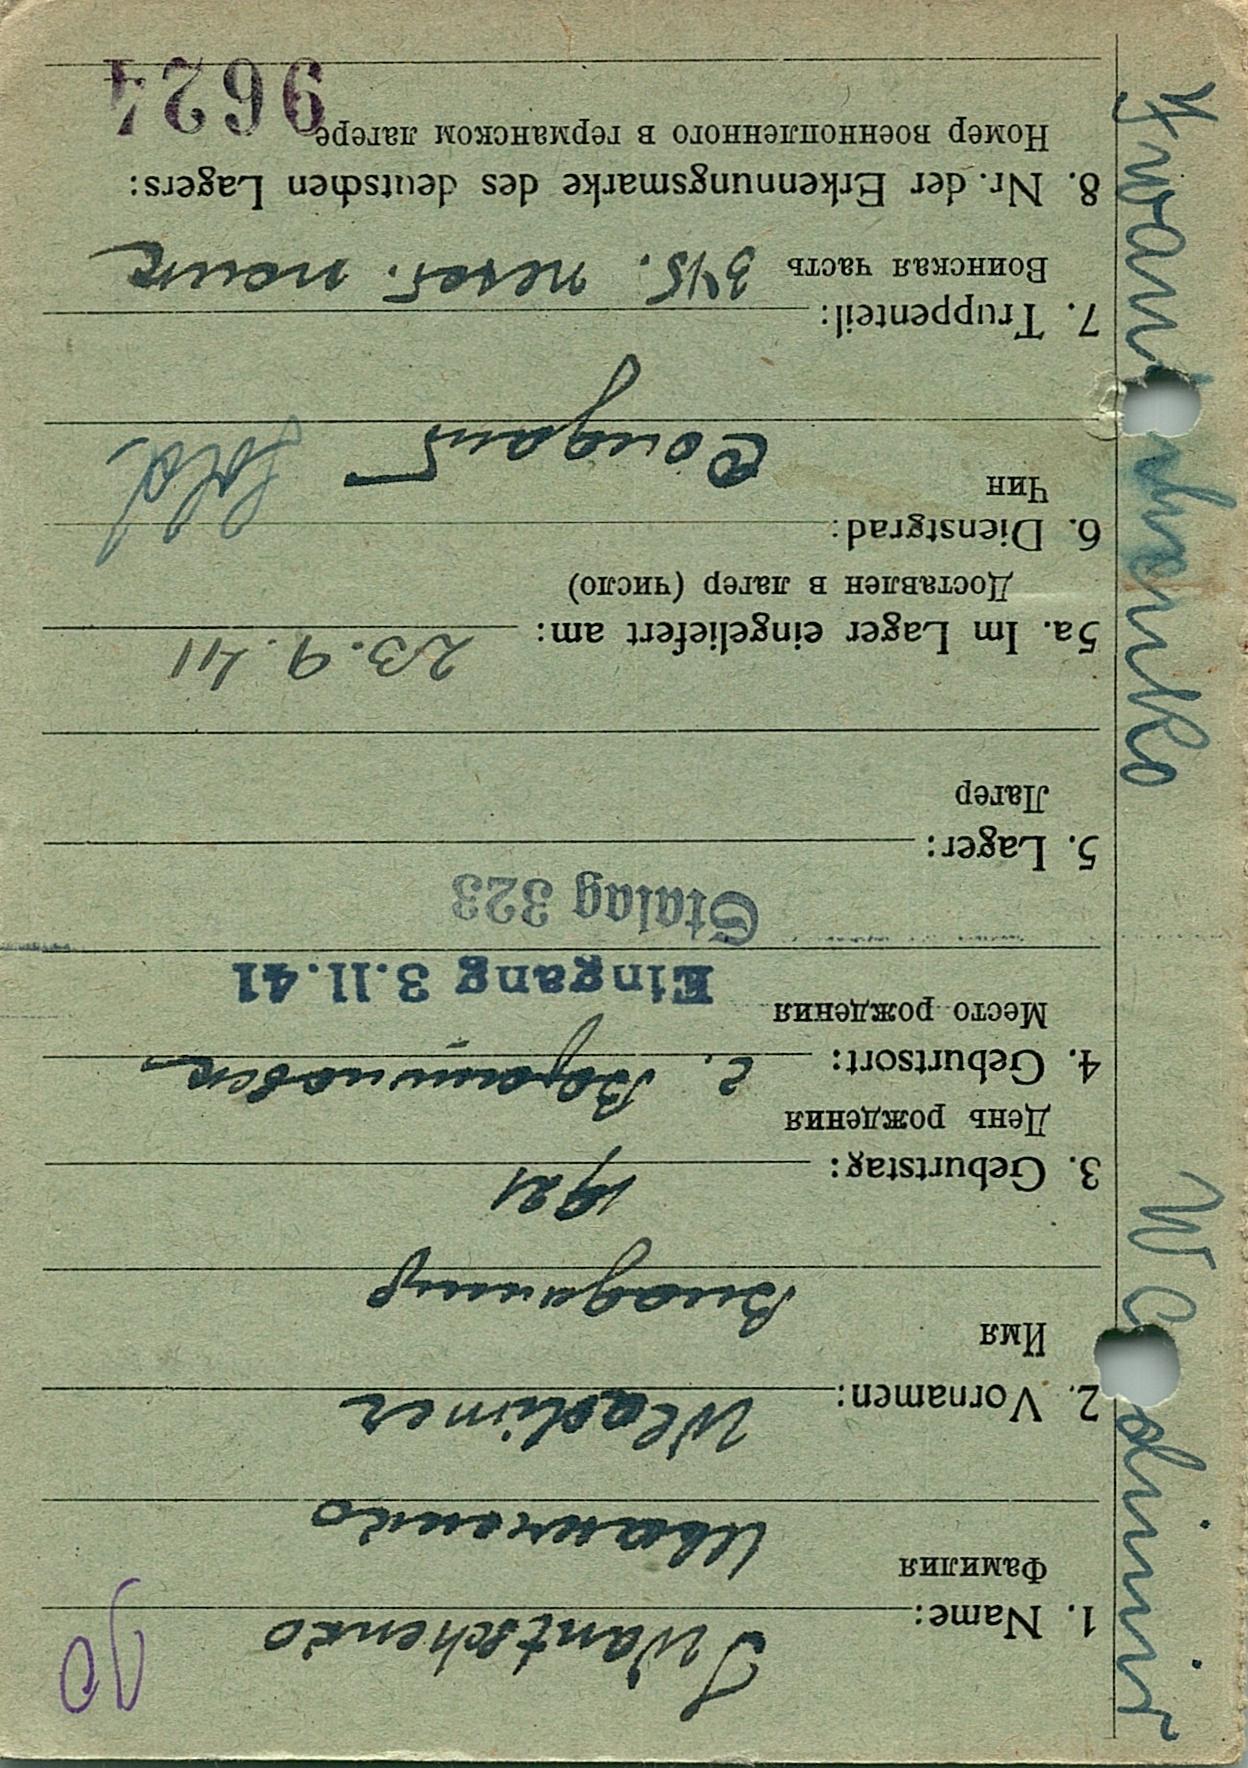 90
1. Name: Iwantschenko
Фамилия Иванченко
2. Vornamen: Wladimer
Имя Владимир
3. Geburtstag: 1921
День рождения
4. Geburtsort: с.
Место рождения
Eingang 3.11.41
Stalag 323
5. Lager:
Лагер
5a. Im Lager eingeliefert am: 23.9.41
Доставлен в лагер (число)
6. Dienstgrad:
Чин Солдат Sold.
7. Truppenteil:
Воинская часть 345. полк
8. Nr. der Erkennungsmarke des deutschen Lagers:
Номер военнопленного в германском лагере 9624
Iwantschenko Wladimir